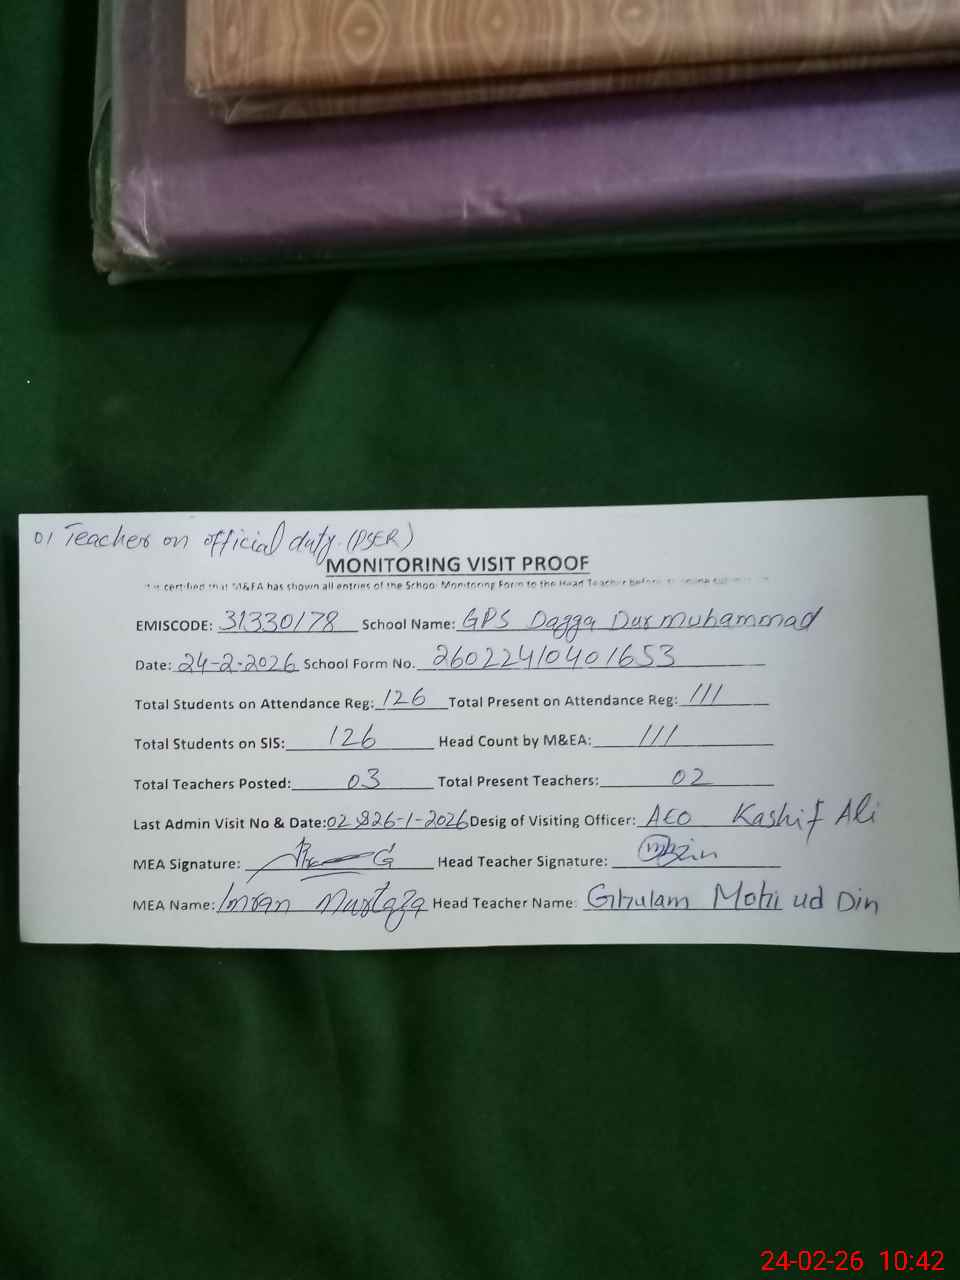 01 Teacher on official duty. (PSER)
MONITORING VISIT PROOF
It is certified that M&EA has shown all entries of the School Monitoring Form to the Head Teacher before
EMISCODE: 31330178 School Name: GPS Dagga Dur muhammad
Date: 24-2-2026 School Form No. 26022410401653
Total Students on Attendance Reg: 126 Total Present on Attendance Reg: 111
Total Students on SIS: 126 Head Count by M&EA: 111
Total Teachers Posted: 03 Total Present Teachers: 02
Last Admin Visit No & Date: 02 & 26-1-2026 Desig of Visiting Officer: AEO Kashif Ali
MEA Signature: Head Teacher Signature:
MEA Name: Imran Murtaza Head Teacher Name: Ghulam Mohi ud Din
24-02-26 10:42